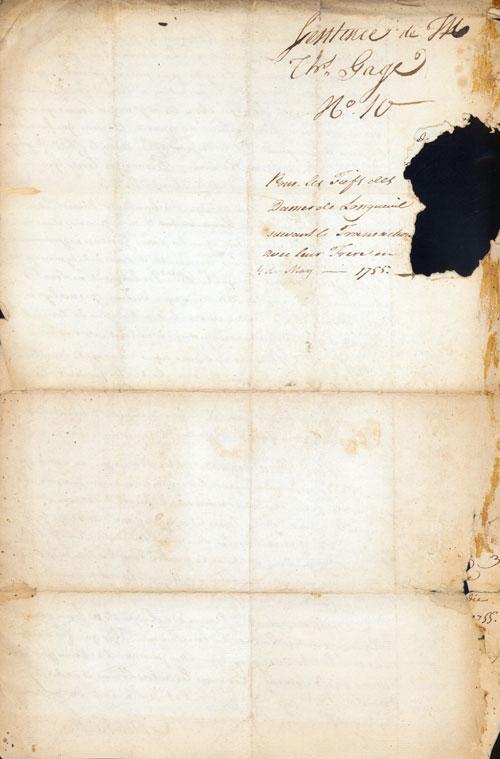 Sentence de Mr
Thos. Gage
No. 10
De
Pour les Fiefs des
Dames de Longueuil
suivant le Transaction
avec leur Frere en
4 de May — 1755.
3
1755.